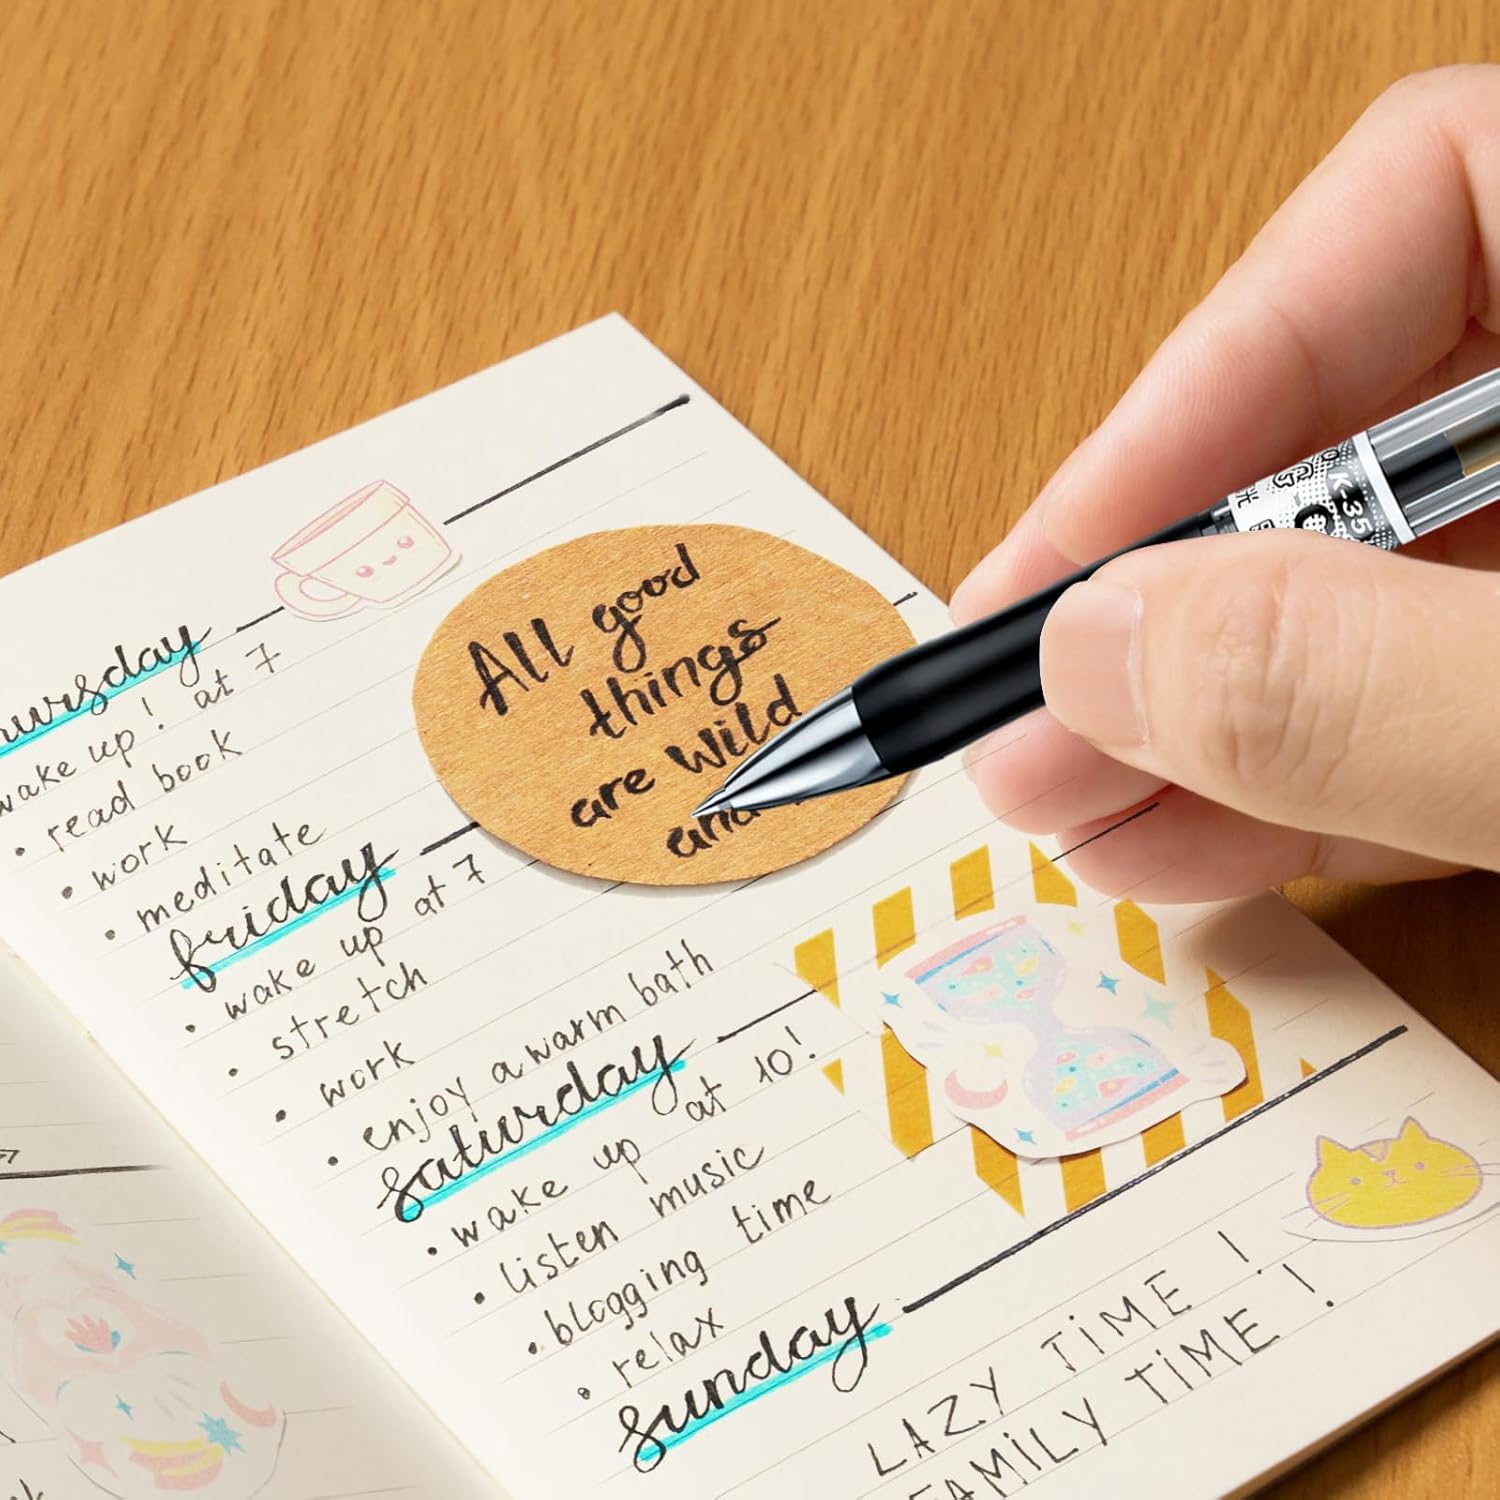 All good
things
are wild
and
thursday
wake up! at 7
• read book
• work
• meditate
friday
• wake up at 7
• stretch
• work
• enjoy a warm bath
saturday
• wake up at 10!
• listen music
• blogging time
• relax
sunday
LAZY TIME!
FAMILY TIME!
K-35